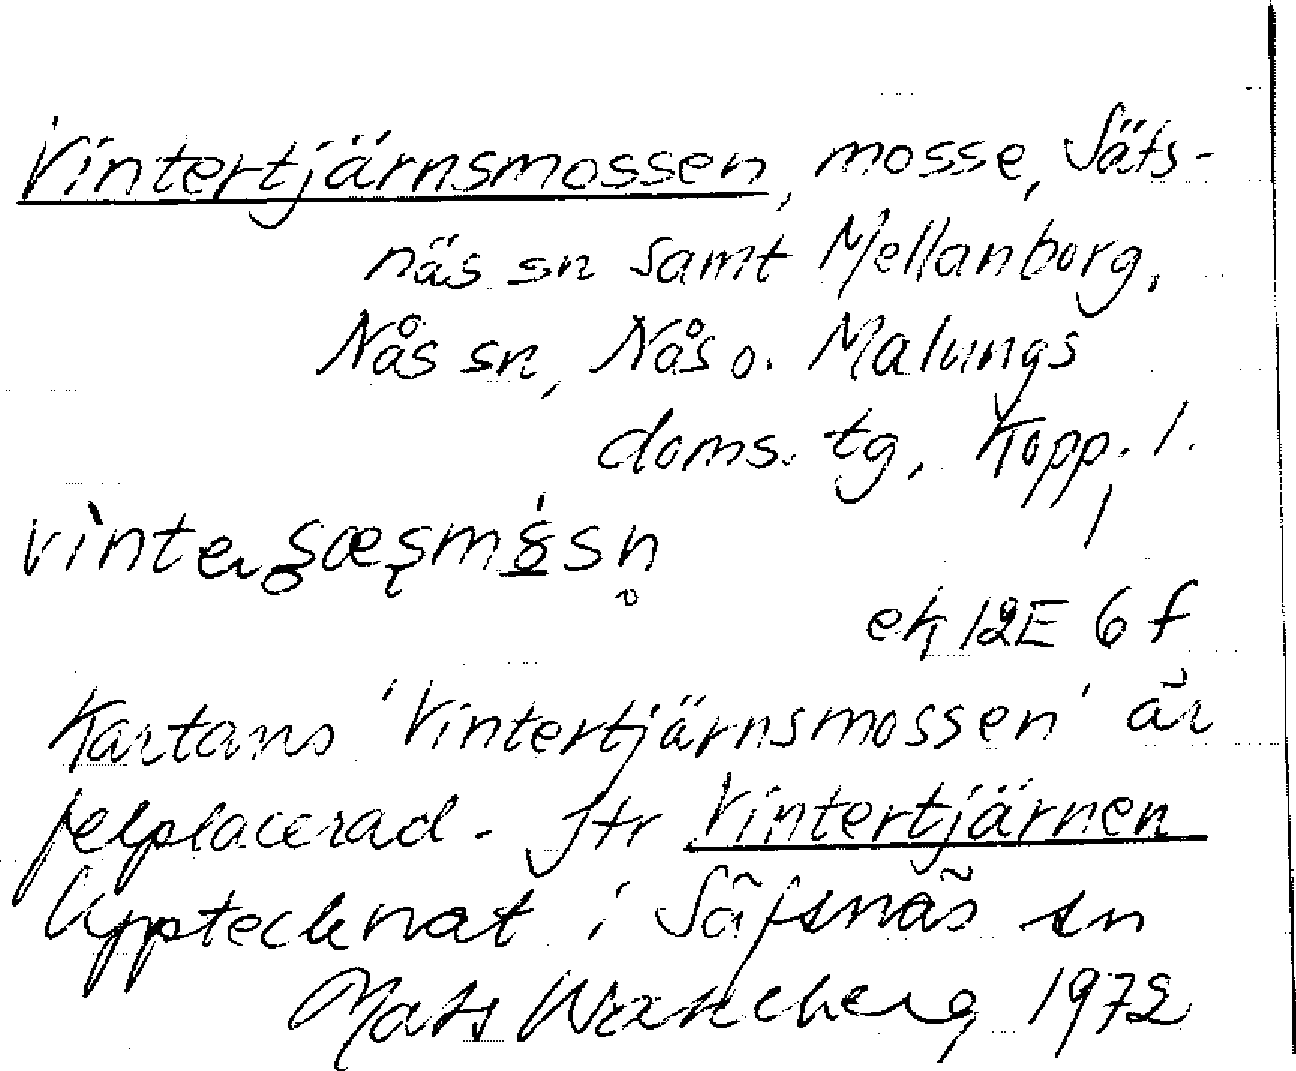 Vintertjärnsmossen, mosse, Säfs-
näs sn samt Mellanborg,
Nås sn, Nås o. Malungs
doms. tg, Kopp. l.
ek 12E 6 f
Kartans 'Vintertjärnsmossen' är
felplacerad. Jfr Vintertjärnen
Upptecknat i Säfsnäs sn
Mats Wahlberg 1972